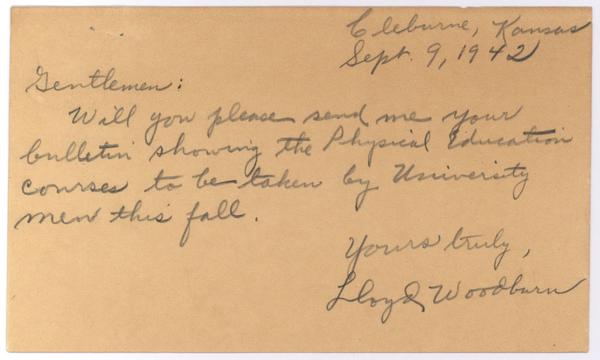 Cleburne, Kansas
Sept. 9, 1942
Gentlemen:
Will you please send me your
bulletin showing the Physical Education
courses to be taken by University
men this fall.
Yours truly,
Lloyd Woodburn